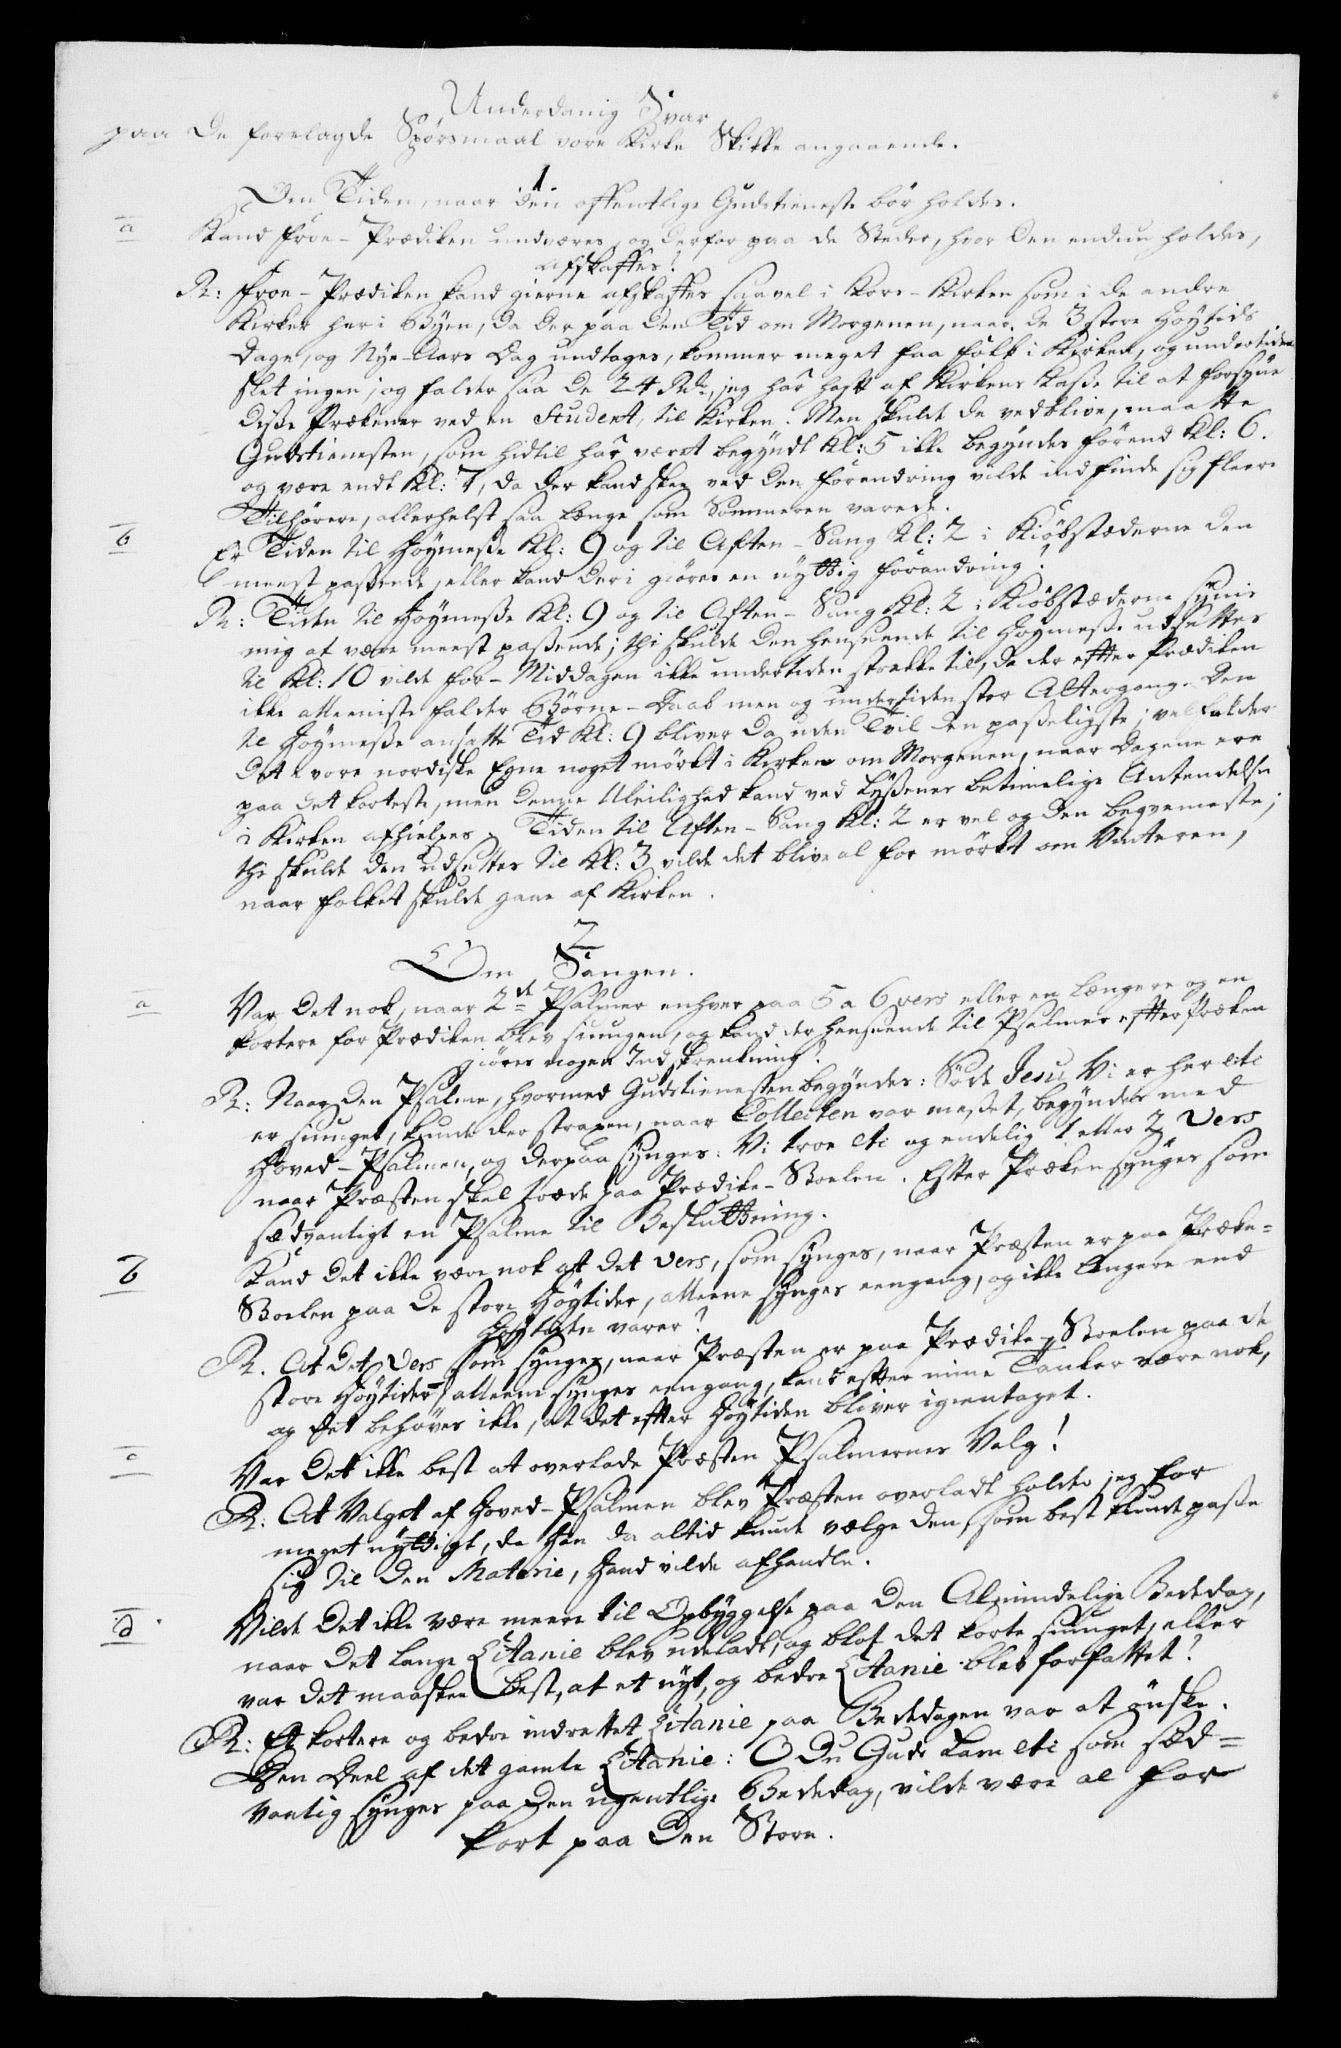 Underdanig Svar
paa De forelagde Spørsmaal vore Kirke Skikke angaaende.
1
Om Tiden, naar den offentlige Gudstieneste bör holdes.
a
Kand froe-Prædiken undværes, og derfor paa de Steder, hvor den endnu holdes,
afskaffes?
R: froe-Prædiken kand gierne afskaffes saavel i Kors-Kirken som i de andre
Kirker her i Byen, da der paa den Tid om Morgenen, naar de 3 store Høytids
Dage, og Nye-Aars Dag undtages, kommer meget faa folk i Kirken, og undertiden
slet ingen; og falder saa de 24 Rdr, jeg har haft af Kirkens Kasse til at forsyne
disse Prækener ved en Student, til Kirken. Men skulde de vedblive, maatte
Gudstienesten, som hidtil har været begyndt Kl: 5 ikke begyndes förend Kl: 6.
og være endt Kl: 7, da der kand skee ved den forandring vilde indfinde sig fleere
Tilhørere, allerhelst saa længe som Sommeren varede.
b
Er Tiden til Høymesse Kl: 9 og til Aften-Sang Kl: 2 i Kiøbstæderne den
meest passende, eller kand deri giøres en nyttig forandring?
R: Tiden til Høymesse Kl: 9 og til Aften-Sang Kl: 2 i Kiøbstæderne synes
mig at være meest passende; thi skulde den henseende til Høymesse udsættes
til Kl: 10 vilde for-Middagen ikke undertiden strække til, da der efter Prædiken
ikke alleeniste falder Børne-Daab men og undertiden stor Altergang. Den
til Høymesse ansatte Tid Kl: 9 bliver da uden Tvil den passeligste; vel falder
det i vore nordiske Egne noget mörkt i Kirken om Morgenen, naar dagene ere
paa det korteste, men denne Uleilighed kand ved Lysenes betimelige Antendelse
i Kirken afhielpes. Tiden til Aften-Sang Kl: 2 er vel og den beqvemmeste;
thi skulde den udsettes til Kl: 3 vilde det blive al for mörkt om Vinteren,
naar folket skulde gaae af Kirken.
2
Om Sangen.
a
Var det nok, naar 2de Psalmer enhver paa 5 a 6 vers eller en længere og en
kortere for Prædiken blev siungen, og kand der henseende til Psalmer efter Præken
giøres nogen Indskrenkning?
R: Naar den Psalme, hvormed Gudstienesten begyndes: Søde Jesu Vi er her etc
er siunget, kunde der straxen, naar Collecten var messet, begyndes med
Hoved-Psalmen, og derpaa synges: Vi troe etc og endelig 1 eller 2 Vers
naar Præsten skal træde paa Prædike-Stoelen. Efter Præken synges som
sædvanligt en Psalme til Beslutning.
b
Kand det ikke være nok at det vers, som synges, naar Præsten er paa Præke-
Stoelen paa de store Høytider, alleene synges eengang, og ikke længere end
Høytiden varer?
R. At det Vers som synges, naar Præsten er paa Prædike-Stoelen paa de
store Høytider alleene synges eengang, kand efter mine Tanker være nok,
og det behøves ikke, at det efter Høytiden bliver igientaget.
c
Var det ikke best at overlade Præsten Psalmernes Valg!
R. At Valget af Hoved-Psalmen blev Præsten overladt holder jeg for
meget nyttigt, da han da altid kunde vælge den, som best kunde passe
sig til den Materie, hand vilde afhandle.
d
Vilde det ikke være meere til Opbyggelse paa den Almindelige Bededag,
naar det lange Litanie blev udeladt, og blot det korte siunget, eller
var det maaskee best, at et nyt, og bedre Litanie blev forfattet?
R: Et kortere og bedre indrettet Litanie paa Bededagen var at önske.
Den Deel af det gamle Litanie: O Du Guds Lam etc som sæd-
vanlig synges paa den ugentlige Bededag, vilde være al for
kort paa den Store.